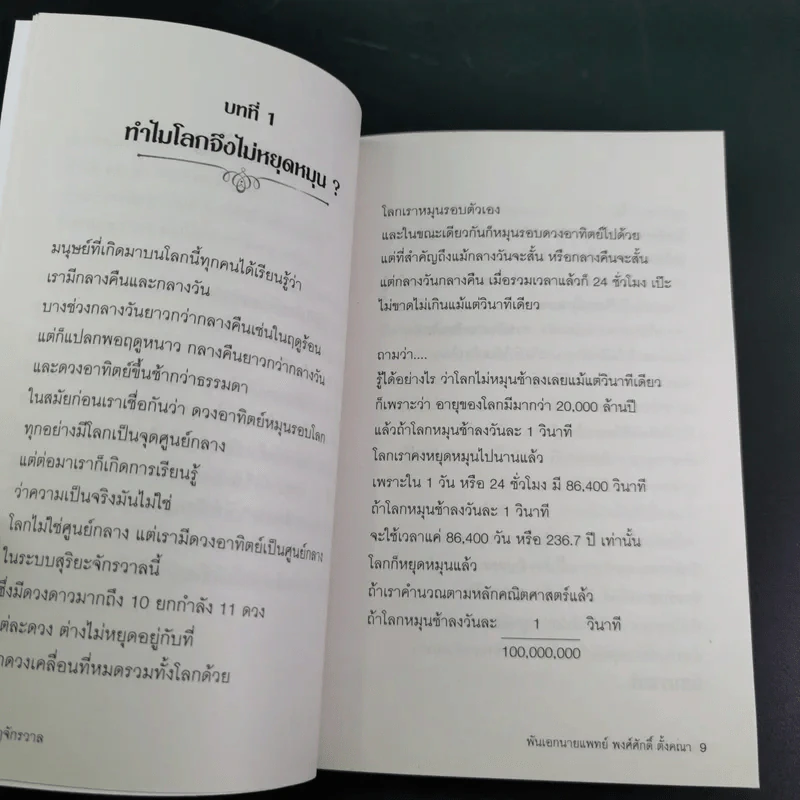 บทที่ 1
ทำไมโลกจึงไม่หยุดหมุน ?
มนุษย์ที่เกิดมาบนโลกนี้ทุกคนได้เรียนรู้ว่า
เรามีกลางคืนและกลางวัน
บางช่วงกลางวันยาวกว่ากลางคืนเช่นในฤดูร้อน
แต่ก็แปลกพอฤดูหนาว กลางคืนยาวกว่ากลางวัน
และดวงอาทิตย์ขึ้นช้ากว่าธรรมดา
ในสมัยก่อนเราเชื่อกันว่า ดวงอาทิตย์หมุนรอบโลก
ทุกอย่างมีโลกเป็นจุดศูนย์กลาง
แต่ต่อมาเราก็เกิดการเรียนรู้
ว่าความเป็นจริงมันไม่ใช่
โลกไม่ใช่ศูนย์กลาง แต่เรามีดวงอาทิตย์เป็นศูนย์กลาง
ในระบบสุริยะจักรวาลนี้
ซึ่งมีดวงดาวมากถึง 10 ยกกำลัง 11 ดวง
ต่ละดวง ต่างไม่หยุดอยู่กับที่
ดวงเคลื่อนที่หมดรวมทั้งโลกด้วย
จักรวาล
โลกเราหมุนรอบตัวเอง
และในขณะเดียวกันก็หมุนรอบดวงอาทิตย์ไปด้วย
แต่ที่สำคัญถึงแม้กลางวันจะสั้น หรือกลางคืนจะสั้น
แต่กลางวันกลางคืน เมื่อรวมเวลาแล้วก็ 24 ชั่วโมง เป๊ะ
ไม่ขาดไม่เกินแม้แต่วินาทีเดียว
ถามว่า....
รู้ได้อย่างไร ว่าโลกไม่หมุนช้าลงเลยแม้แต่วินาทีเดียว
ก็เพราะว่า อายุของโลกมีมากว่า 20,000 ล้านปี
แล้วถ้าโลกหมุนช้าลงวันละ 1 วินาที
โลกเราคงหยุดหมุนไปนานแล้ว
เพราะใน 1 วัน หรือ 24 ชั่วโมง มี 86,400 วินาที
ถ้าโลกหมุนช้าลงวันละ 1 วินาที
จะใช้เวลาแค่ 86,400 วัน หรือ 236.7 ปี เท่านั้น
โลกก็หยุดหมุนแล้ว
ถ้าเราคำนวณตามหลักคณิตศาสตร์แล้ว
ถ้าโลกหมุนช้าลงวันละ 1 วินาที
100,000,000
พันเอกนายแพทย์ พงศ์ศักดิ์ ตั้งคณา 9